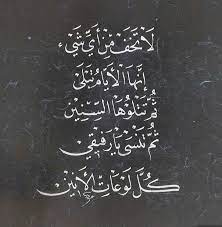 لَا تَخَفْ مِنْ أَيِّ شَيْءٍ
إِنَّهَا الْأَيَّامُ تُبْلَى
ثُمَّ تَتْلُوهَا السِّنِينْ
ثُمَّ تَنْسَى يَا رَفِيقِي
كُلَّ لَوْعَاتِ الْأَنِينْ